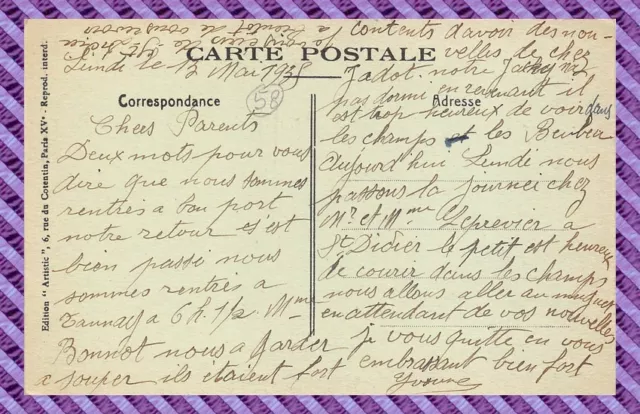 CARTE POSTALE
Correspondance
Adresse
Edition "Artistic", 6, rue du Cotentin, Paris XVe - Reprod. interd.
58
Lundi le 12 Mai
Chers Parents
Deux mots pour vous
dire que nous sommes
rentrés a bon port
notre retour s'est
bien passé nous
sommes rentrés a
Tannay a 6 h. 1/2. Mme
Bonnot nous a garder
a souper ils etaient fort
contents d'avoir des nou-
velles de chez
Jadot. notre
pas dormi en revenant il
est trop heureux de voir dans
les champs et les
Aujourd'hui Lundi nous
passons la journée chez
Mr et Mme Leprevier a
St Didier le petit est heureux
de courir dans les champs
nous allons aller au muguet
en attendant de vos nouvelles
je vous quitte en vous
embrassant bien fort
Yvonne